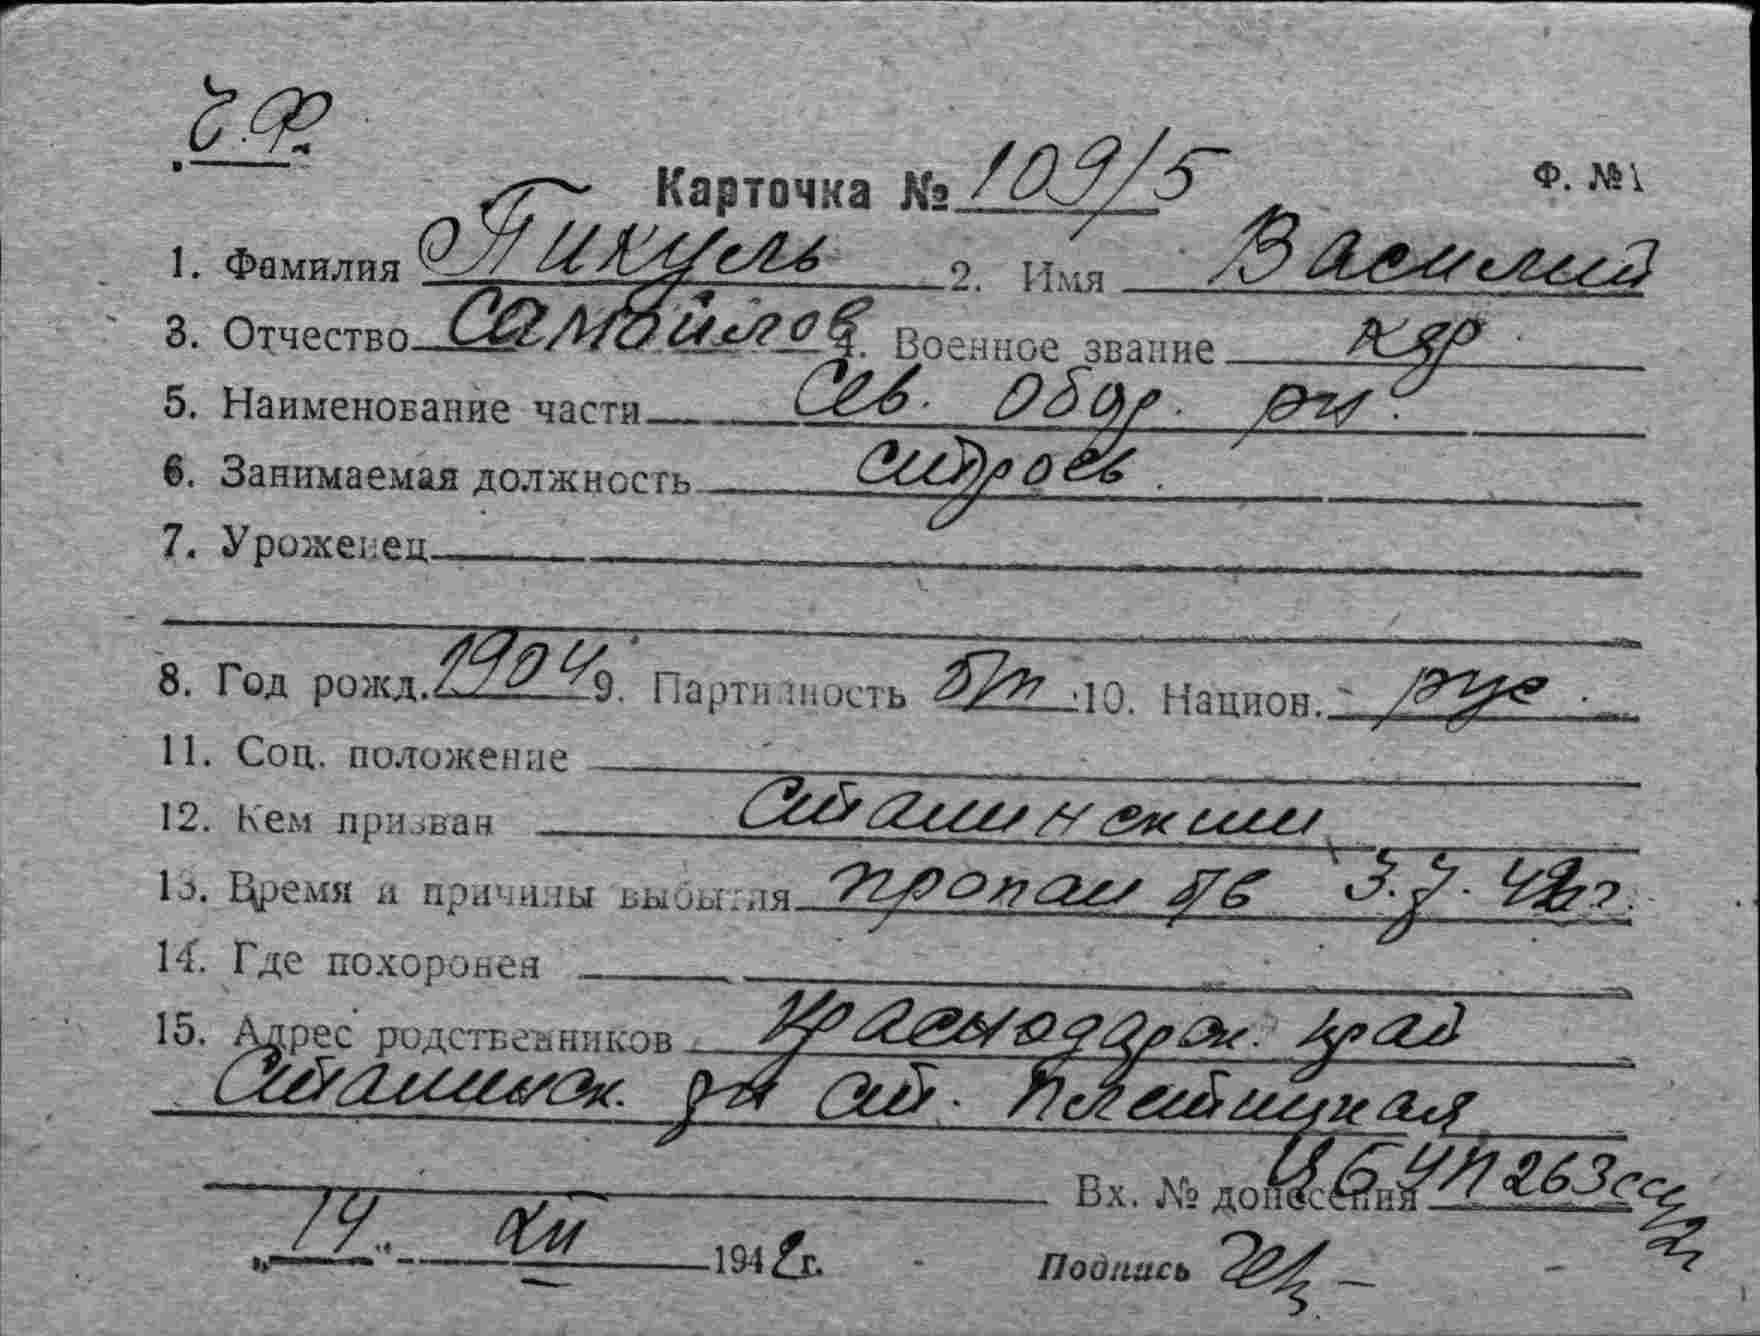 Ч.Ф.
Карточка № 109/5 Ф. №1
1. Фамилия Пикуль 2. Имя Василий
3. Отчество Самойлов 4. Военное звание кдр
5. Наименование части Сев. Обор. рн.
6. Занимаемая должность строев.
7. Уроженец
8. Год рожд. 1904 9. Партийность б/п 10. Национ. рус.
11. Соц. положение
12. Кем призван Сталинским
13. Время и причины выбытия пропал б/в 3.7.42г.
14. Где похоронен
15. Адрес родственников Краснодарск. край
Сталинск. рн ст.
Вх. № донесения ЦБУП 263сс
„14" XII 1942г. Подпись